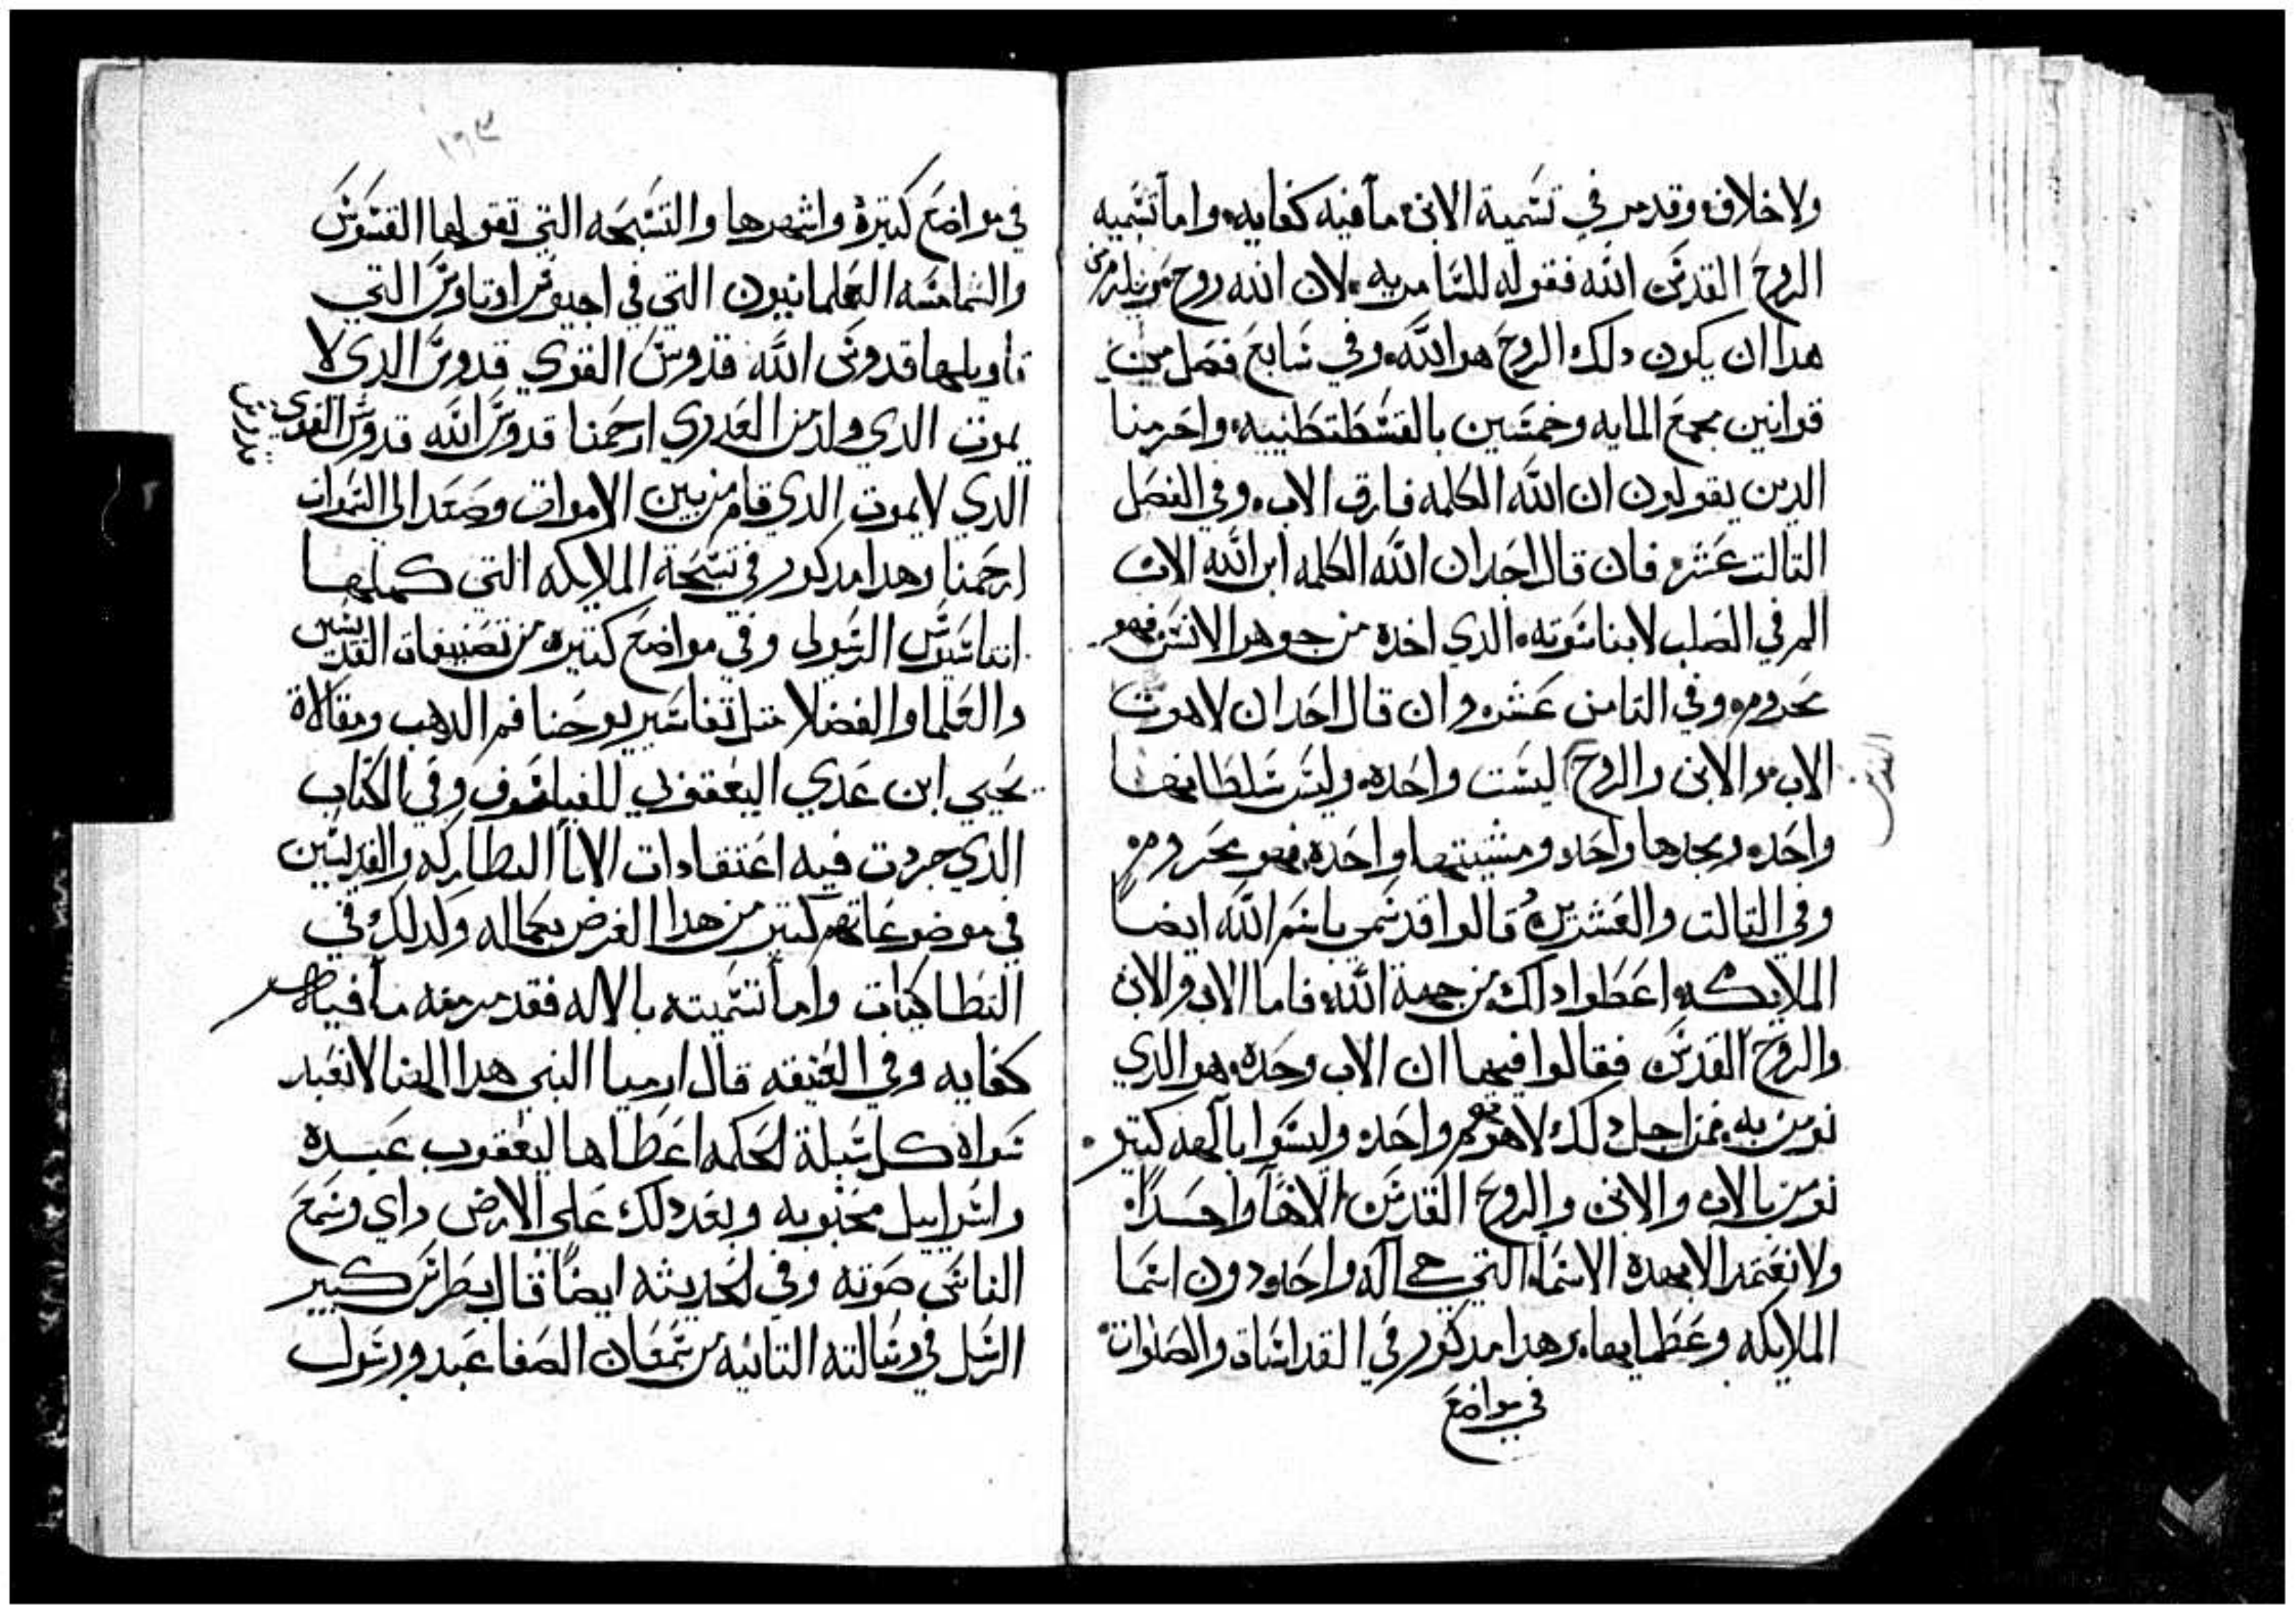 ولا خلاف وقد مر في تسمية الابن ما فيه كفايه واما تسميه
الروح القدس الله فقوله للسامريه لان الله روح ويلزم من
هدا ان يكون دلك الروح هو الله وفي سابع فصل من
قوانين مجمع المايه وخمسين بالقسطنطينيه واحرمنا
الدين يقولون ان الله الكلمه فارق الاب وفي الفصل
التالت عشر فان قال احد ان الله الكلمه ابن الله الاب
الم في الصلب لا بناسوته الدي اخده من جوهر الانس فهو
محروم وفي التامن عشر وان قال احد ان لاهوت
الاب والابن والروح ليست واحده وليس سلطانها
القدس
واحده ومجدها واحد ومشيتها واحده فهو محروم
وفي التالت والعشرين قالوا قد سمي باسم الله ايضا
الملايكه اعطوا دلك من جهة الله فاما الاب والابن
والروح القدس فقالوا فيها ان الاب وحده هو الدي
نومن به فمن اجل دلك لاهوتهم واحد وليسوا بالهه كتير
نومن بالاب والابن والروح القدس الاها واحدا
ولا نعتمد الا بهده الاسماء التي هي اله واحد ودون اسما
الملايكه وعظمايها وهدا مدكور في القداسات والصلوات
في مواضع
١٦٣
في مواضع كتيرة واشهرها والتسبحه التي تقولها القسوس
والشمامسه العلمانيون التي في اجيوس اوتاوس التي
تاويلها قدوس الله قدوس القوي قدوس الدي لا
يموت الدي ولد من العدري ارحمنا قدوس الله قدوس القوي
قدوس
الدي لا يموت الدي قام من بين الاموات وصعد الى السموات
ارحمنا وهدا مدكور في تسبحة الملايكه التي كملها
اتناسيوس الرسولى وفي مواضع كتيره من تصنيفات القديسين
والعلما والفضلا متل تفاسير يوحنا فم الدهب ومقالاة
يحيي ابن عدي اليعقوبي الفيلسوف وفي الكتاب
الدي جردت فيه اعتقادات الابا البطاركه والقديسين
في موضوعاتهم كتير من هدا الغرض بكماله وكدلك في
النطاكيات واما تسميته بالاله فقد مر معه ما فيه
كفايه وفي العتيقه قال ارميا النبى هدا الهنا لا نعبد
سواه كل سبيلة الحكمه اعطاها ليعقوب عبده
واسراييل محبوبه وبعد دلك على الارض راي وسمع
الناس صوته وفي الحديثه ايضا قال بطرس كبير
الرسل في رسالته التانيه من سمعان الصفا عبد ورسول